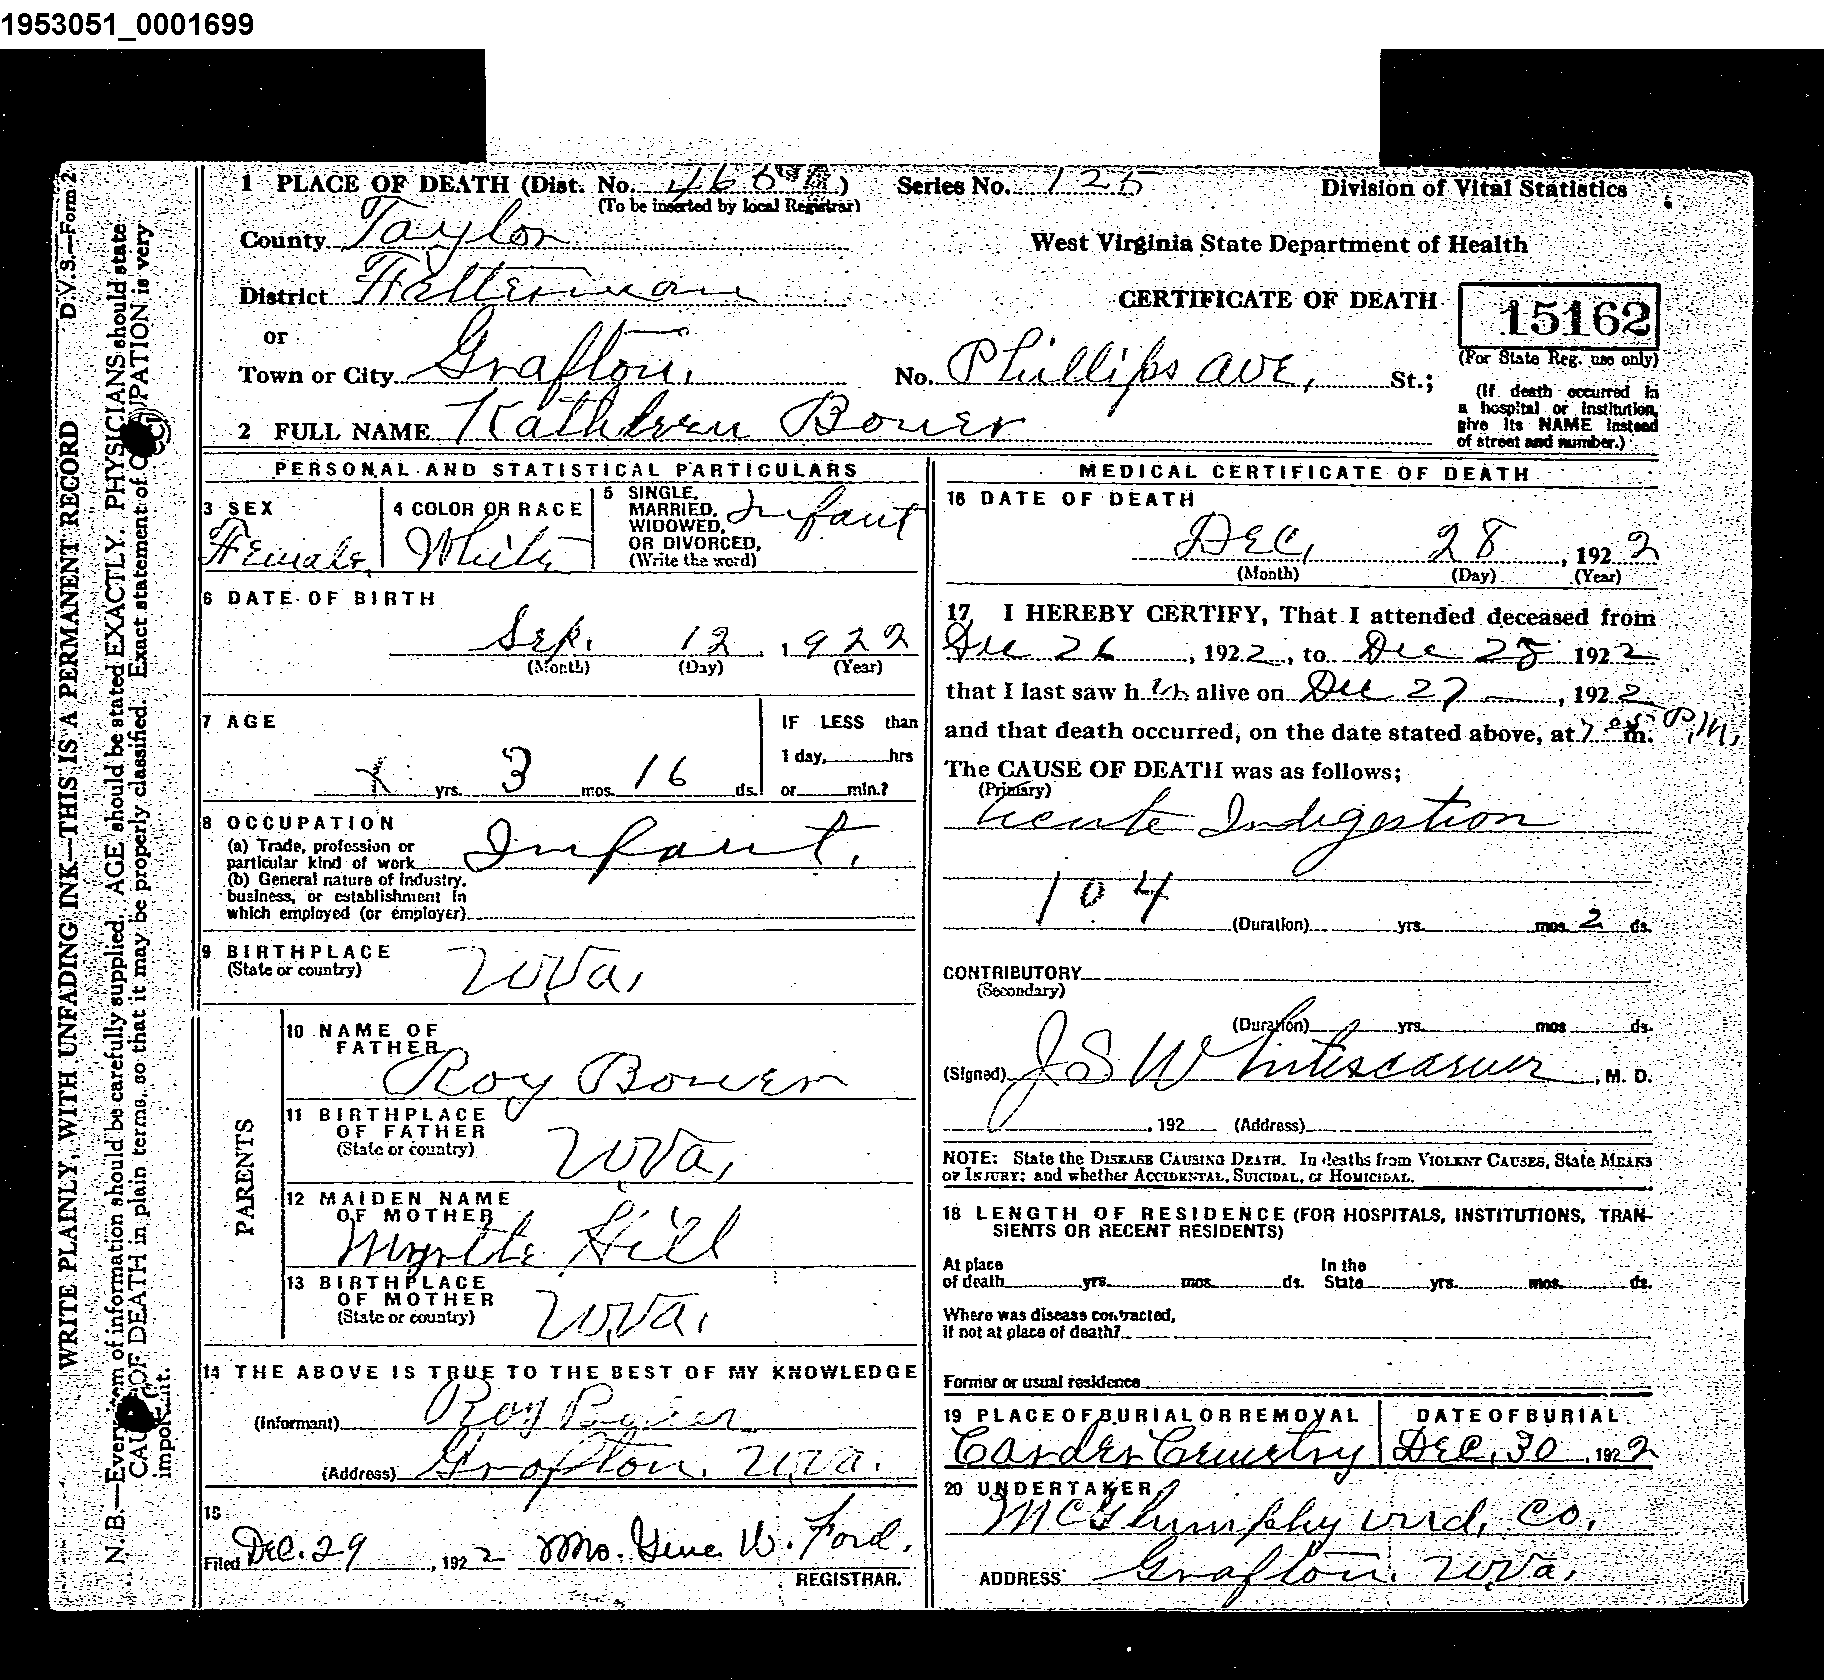 1953051_0001699
1 PLACE OF DEATH (Dist. No. ) Series No. 125 Division of Vital Statistics
(To be inserted by local Registrar)
County Taylor West Virginia State Department of Health
District Fetterman CERTIFICATE OF DEATH 15162
or (For State Reg. use only)
Town or City Grafton, No. Phillips ave, St.;
(If death occurred in
a hospital or institution,
give its NAME instead
of street and number.)
2 FULL NAME Kathleen Bower
PERSONAL AND STATISTICAL PARTICULARS
3 SEX
Female
4 COLOR OR RACE
White
5 SINGLE,
MARRIED,
WIDOWED,
OR DIVORCED,
(Write the word)
Infant
6 DATE OF BIRTH
Sep. 12, 1922
(Month) (Day) (Year)
7 AGE
yrs. 3 mos. 16 ds.
IF LESS than
1 day, hrs
or min.?
8 OCCUPATION
(a) Trade, profession or
particular kind of work
(b) General nature of industry,
business, or establishment in
which employed (or employer)
Infant.
9 BIRTHPLACE
(State or country)
W.Va.
PARENTS
10 NAME OF
FATHER
Roy Bower
11 BIRTHPLACE
OF FATHER
(State or country)
W.Va.
12 MAIDEN NAME
OF MOTHER
Myrtle Hill
13 BIRTHPLACE
OF MOTHER
(State or country)
W.Va.
14 THE ABOVE IS TRUE TO THE BEST OF MY KNOWLEDGE
(Informant) Roy Bower
(Address) Grafton. W.Va.
15
Filed Dec. 29, 1922 W. Ford.
REGISTRAR.
MEDICAL CERTIFICATE OF DEATH
16 DATE OF DEATH
Dec, 28, 1922
(Month) (Day) (Year)
17 I HEREBY CERTIFY, That I attended deceased from
Dec 26, 1922, to Dec 28 1922
that I last saw her alive on Dec 27, 1922
and that death occurred, on the date stated above, at 7 m. P.M.
The CAUSE OF DEATH was as follows;
(Primary)
Acute Indigestion
104
(Duration) yrs. mos. 2 ds.
CONTRIBUTORY
(Secondary)
(Duration) yrs. mos ds.
(Signed) J S Whitescarver, M. D.
, 192 (Address)
NOTE: State the DISEASE CAUSING DEATH. In deaths from VIOLENT CAUSES, State MEANS
OF INJURY; and whether ACCIDENTAL, SUICIDAL, or HOMICIDAL.
18 LENGTH OF RESIDENCE (FOR HOSPITALS, INSTITUTIONS, TRAN-
SIENTS OR RECENT RESIDENTS)
At place In the
of death yrs. mos. ds. State yrs. mos. ds.
Where was disease contracted,
if not at place of death?
Former or usual residence
19 PLACE OF BURIAL OR REMOVAL DATE OF BURIAL
Carder Cemetry Dec. 30, 1922
20 UNDERTAKER
McGlumphy und. Co.
ADDRESS Grafton. W.Va.
D.V.S.—Form 2
WRITE PLAINLY, WITH UNFADING INK—THIS IS A PERMANENT RECORD
N.B.—Every item of information should be carefully supplied. AGE should be stated EXACTLY. PHYSICIANS should state
CAUSE OF DEATH in plain terms, so that it may be properly classified. Exact statement of OCCUPATION is very
important.